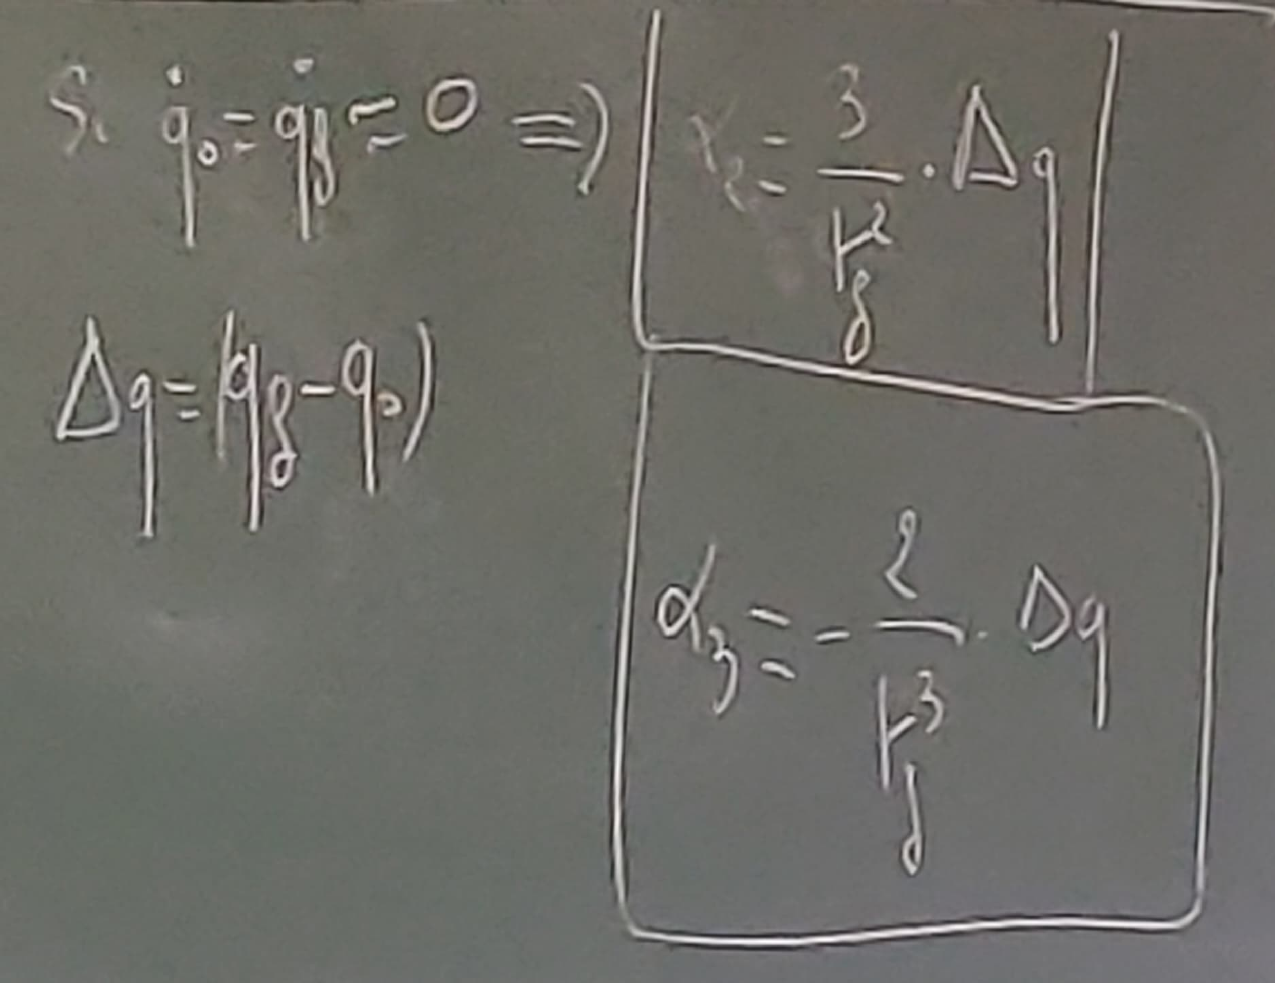 Si q̇₀ = q̇f = 0 ⇒ α₂ = 3/tf² · Δq
Δq = (qf - q₀)
α₃ = - 2/tf³ · Δq